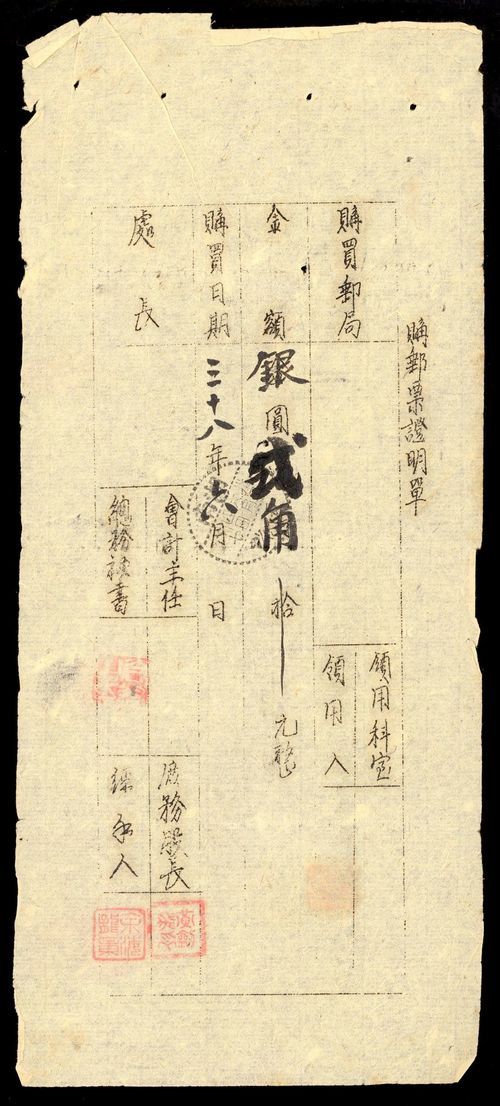 購郵票證明單
購買郵局
領用科室
領用人
金額 銀圓貳角 拾 元整
購買日期 三十八年六月 日
處長
會計主任
總務秘書
庶務股長
經手人